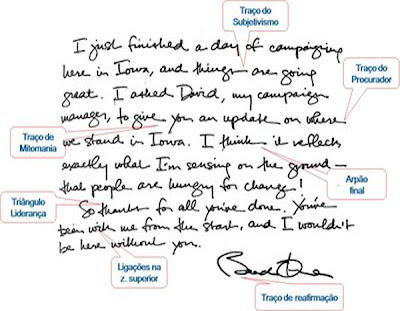 Traço do
Subjetivismo
I just finished a day of campaigning
here in Iowa, and things are going
great. I asked David, my campaign
manager, to give you an update on where
we stand in Iowa. I think it reflects
exactly what I'm sensing on the ground —
that people are hungry for change!
So thanks for all you've done. You've
been with me from the start, and I wouldn't
be here without you.
Traço do
Procurador
Traço de
Mitomania
Arpão
final
Triângulo
Liderança
Ligações na
z. superior
Traço de reafirmação